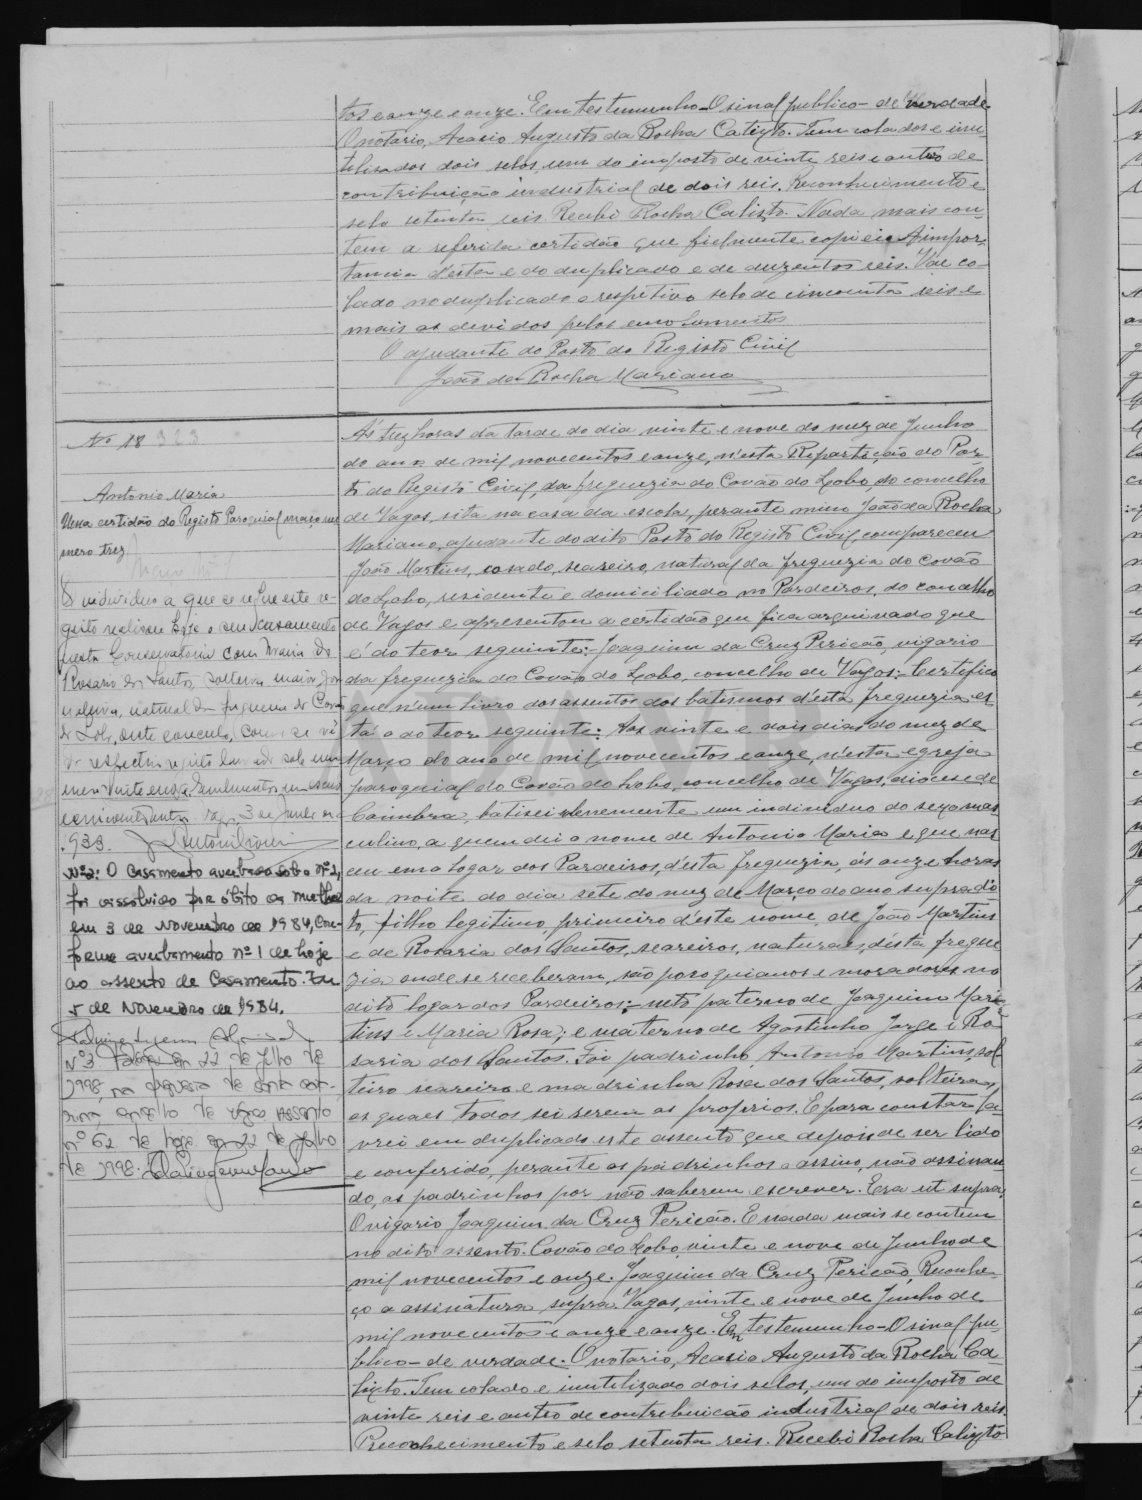 tos e onze e onze. Em testemunho - O sinal publico - de verdade
O notario, Acacio Augusto da Rocha Calixto. Tem colados e inu-
tilisados dois selos, um do imposto de vinte reis e outro de
contribuição industrial de dois reis. Reconhecimento e
selo setenta reis. Recebi Rocha Calixto. Nada mais con-
tem a referida certidão que fielmente copiei. A impor-
tancia d'esta e do duplicado e de duzentos reis. Vae co-
lado no duplicado o respetivo selo de cincoenta reis e
mais os devidos pelos emolumentos
O ajudante do Posto do Registo Civil
João da Rocha Mariano
Nº 18 323
Antonio Maria
Uma certidão do Registo Paroquial maço nu-
mero trez
O individuo a que se refere este re-
gisto realisou hoje o seu casamento
nesta Conservatoria com Maria do
Rosario dos Santos, solteira, maior,
natural da freguesia do Covão
do Lobo, deste concelho, como se vê
do respectivo registo lavrado sob nu-
mero vinte e
933.
Nº 2: O Casamento averbado sob o nº 1,
foi dissolvido por óbito da mulher
em 3 de Novembro de 1984, con-
forme averbamento nº 1 de hoje
ao assento de Casamento. Em
5 de Novembro de 1984.
Nº 3 Faleceu em 22 de Julho de
1998, na freguesia de
concelho de Vagos Assento
nº 62 de hoje em 22 de Julho
de 1998.
Ás trez horas da tarde do dia vinte e nove do mez de Junho
do ano de mil novecentos e onze, n'esta Repartição do Pos-
to do Registo Civil, da freguezia do Covão do Lobo, do concelho
de Vagos, sita na casa da escola, perante mim João da Rocha
Mariano, ajudante do dito Posto do Registo Civil compareceu
João Martins, casado, seareiro, natural da freguezia do Covão
do Lobo, residente e domiciliado no Pardeiros, do concelho
de Vagos e apresentou a certidão que fica arquivada que
é do teor seguinte: - Joaquim da Cruz Pericão, vigario
da freguezia do Covão do Lobo, concelho de Vagos: Certifico
que n'um livro dos assentos dos batismos d'esta freguezia es-
tá o do teor seguinte: Aos vinte e dois dias do mez de
Março do ano de mil novecentos e onze, n'esta egreja
paroquial do Covão do Lobo, concelho de Vagos, diocese de
Coimbra, batisei solenemente um individuo do sexo mas-
culino, a quem dei o nome de Antonio Maria e que nas-
ceu em o logar dos Pardeiros, d'esta freguezia, ás onze horas
da noite do dia sete do mez de Março do ano supradi-
to, filho legitimo, primeiro d'este nome, de João Martins
e de Rosaria dos Santos, seareiros, naturaes, d'esta fregue-
zia onde se receberam, são paroquianos e moradores no
dito logar dos Pardeiros; - neto paterno de Joaquim Mar-
tins e Maria Rosa; e materno de Agostinho Jorge e Ro-
saria dos Santos. Foi padrinho, Antonio Martins, sol-
teiro seareiro e madrinha Rosa dos Santos, solteira,
os quaes todos sei serem os proprios. E para constar la-
vrei em duplicado este assento que depois de ser lido
e conferido, perante os padrinhos o assino, não assinan-
do, os padrinhos por não saberem escrever. Era ut supra.
O vigario Joaquim da Cruz Pericão. E nada mais se contem
no dito assento. Covão do Lobo, vinte e nove de Junho de
mil novecentos e onze. Joaquim da Cruz Pericão, Reconhe-
ço a assinatura supra. Vagos, vinte e nove de Junho de
mil novecentos e onze e onze. Em testemunho - O sinal pu-
blico - de verdade. O notario, Acacio Augusto da Rocha Ca-
lixto. Tem colado e inutilizado dois selos, um do imposto de
vinte reis e outro de contribuição industrial de dois reis.
Reconhecimento e selo setenta reis. Recebi Rocha Calixto